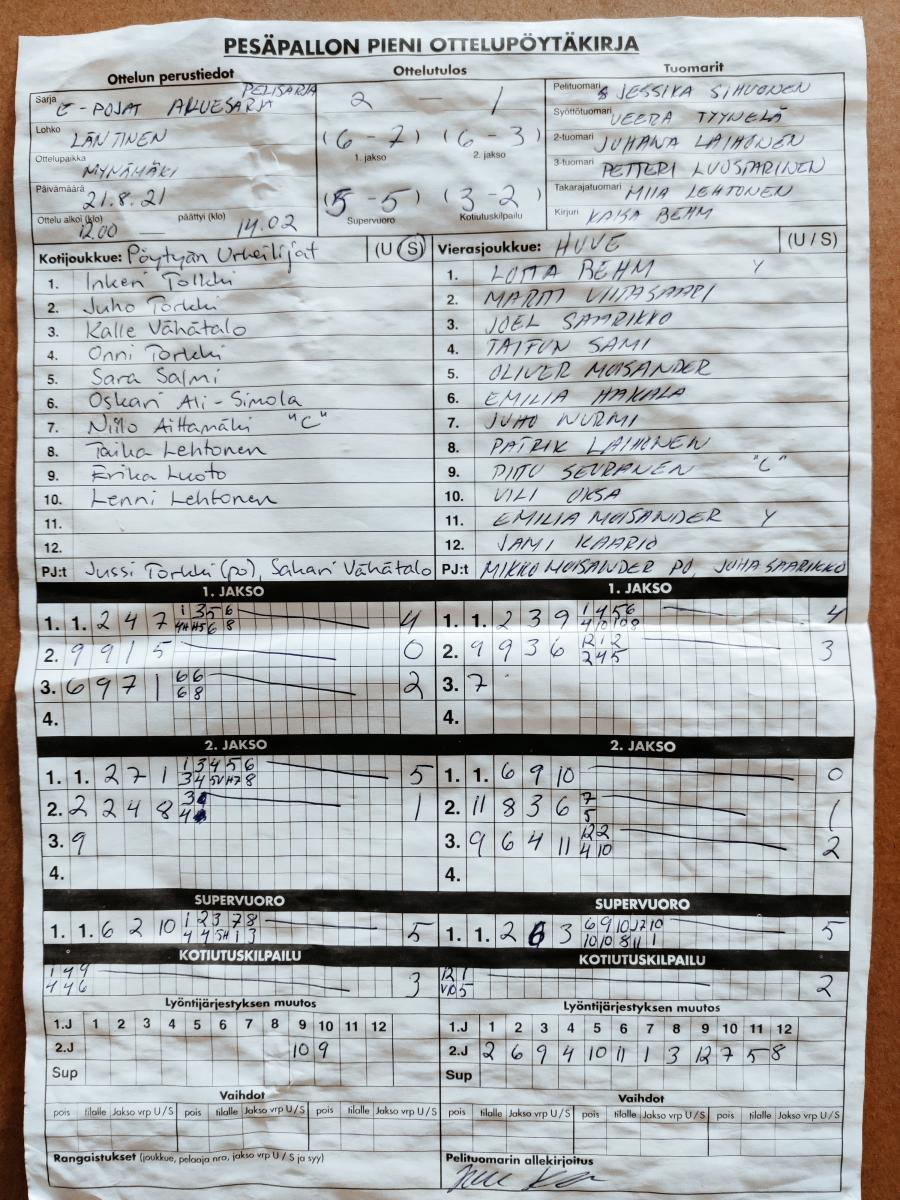 PESÄPALLON PIENI OTTELUPÖYTÄKIRJA
Ottelun perustiedot
Ottelutulos
Tuomarit
Sarja E-POJAT ALUESARJA PELISARJA
Lohko LÄNTINEN
Ottelupaikka MYNÄMÄKI
Päivämäärä 21.8.21
Ottelu alkoi (klo) 12.00 — päättyi (klo) 14.02
2 — 1
(6 - 7) (6 - 3)
1. jakso 2. jakso
(5 - 5) (3 - 2)
Supervuoro Kotiutuskilpailu
Pelituomari JESSIKA SIHVONEN
Syöttötuomari VEERA TYYNELÄ
2-tuomari JUHANA LAIHONEN
3-tuomari PETTERI LUOSTARINEN
Takarajatuomari MIIA LEHTONEN
Kirjuri KAISA BEHM
Kotijoukkue: Pöytyän Urheilijat (U S)
1. Inkeri Tolkki
2. Juho Torkki
3. Kalle Vähätalo
4. Onni Torkki
5. Sara Salmi
6. Oskari Ali-Simola
7. Niilo Aittamäki "C"
8. Taika Lehtonen
9. Erika Luoto
10. Lenni Lehtonen
11.
12.
PJ:t Jussi Torkki (po), Sakari Vähätalo
Vierasjoukkue: HUVE (U / S)
1. LOTTA BEHM Y
2. MARTTI VIITASAARI
3. JOEL SAARIKKO
4. TAIFUN SAMI
5. OLIVER MOISANDER
6. EMILIA HAKALA
7. JUHO NURMI
8. PATRIK LAIHONEN
9. PIITU SEURANEN "C"
10. VILI OKSA
11. EMILIA MOISANDER Y
12. JAMI KAARIO
PJ:t MIKKO MOISANDER PO, JUHA SAARIKKO
1. JAKSO
1. 1. 2 4 7 1 3 5 6 4
6 8
2. 9 9 1 5 0
3. 6 9 7 1 6 6 2
6 8
4.
1. JAKSO
1. 1. 2 3 9 1 4 5 6 4
4 10 10 8
2. 9 9 3 6 12 1 2 3
2 4 5
3. 7
4.
2. JAKSO
1. 1. 2 7 1 1 3 4 5 6 5
3 4 5 8
2. 2 2 4 8 3 1
4
3. 9
4.
2. JAKSO
1. 1. 6 9 10 0
2. 11 8 3 6 7 1
5
3. 9 6 4 11 12 2 2
4 10
4.
SUPERVUORO
1. 1. 6 2 10 1 2 3 7 8 5
4 4 5H 1 3
SUPERVUORO
1. 1. 2 6 3 6 9 10 12 10 5
10 10 8 11 1
KOTIUTUSKILPAILU
1 4 9 3
4 4 6
KOTIUTUSKILPAILU
12 1 2
5
Lyöntijärjestyksen muutos
1.J 1 2 3 4 5 6 7 8 9 10 11 12
2.J 10 9
Sup
Lyöntijärjestyksen muutos
1.J 1 2 3 4 5 6 7 8 9 10 11 12
2.J 2 6 9 4 10 11 1 3 12 7 5 8
Sup
Vaihdot
pois tilalle Jakso vrp U/S pois tilalle Jakso vrp U/S pois tilalle Jakso vrp U/S
Vaihdot
pois tilalle Jakso vrp U/S pois tilalle Jakso vrp U/S pois tilalle Jakso vrp U/S
Rangaistukset (joukkue, pelaaja nro, jakso vrp U / S ja syy)
Pelituomarin allekirjoitus